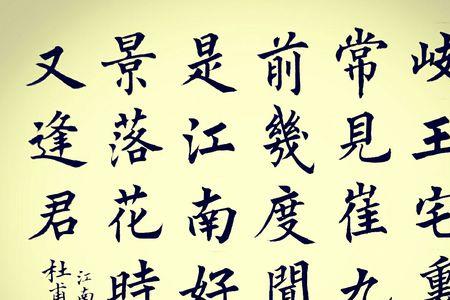 岐王宅
常見崔九
前幾度聞
是江南好
景落花時
又逢君
江南
杜甫